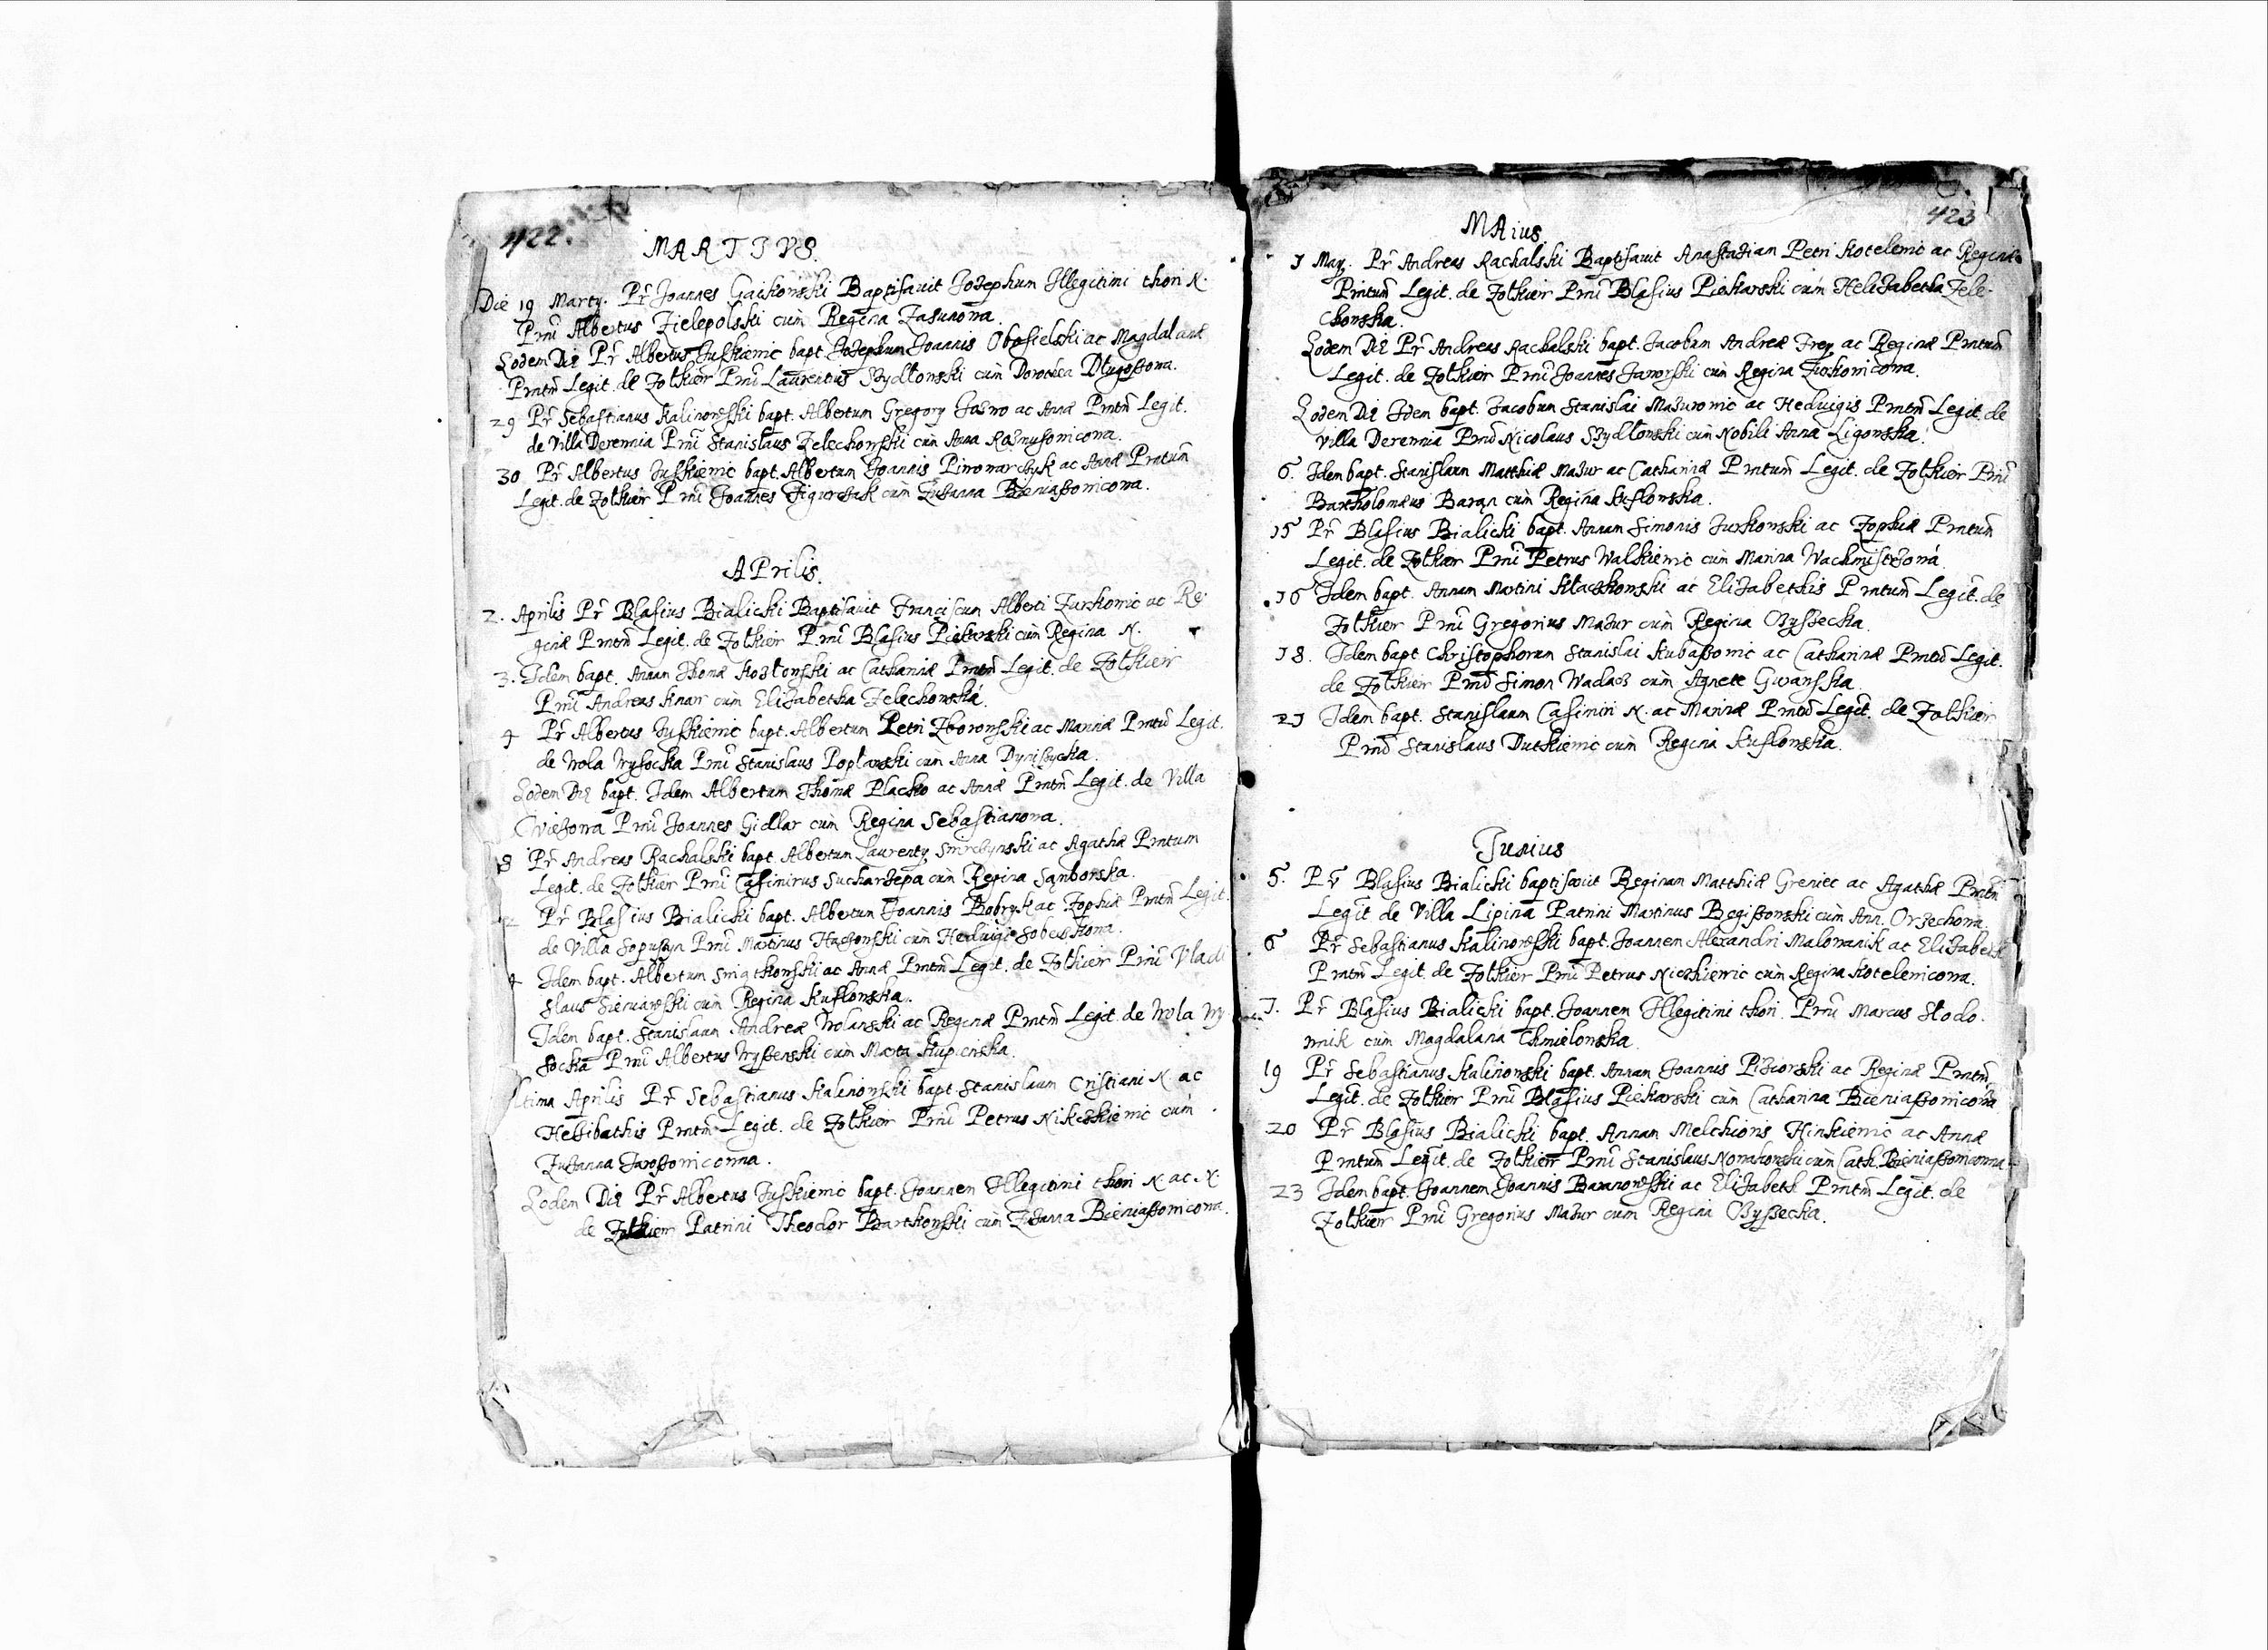 422.
MARTIVS.
Die 19 Martij. Pr Joannes Gaikowski Baptisauit Josephum Illegitimi thori N.
Prni Albertus Zielepolski cum Regina Zasunowa
Eodem Die Pr Albertus Juskiewic bapt. Josephum Joannis Obosielski ac Magdalenæ
Prntm Legit. de Zolkiew Prni Laurentius Szydlowski cum Dorothea Dlugoszowa.
29 Pr Sebastianus Kalinowski bapt. Albertum Gregorij Jasko ac Annæ Prntm Legit.
de Villa Derewnia Prni Stanislaus Zelechowski cum Anna Rosmusowicowa.
30 Pr Albertus Juskiewic bapt. Albertum Joannis Piwowarczyk ac Annæ Prntum
Legit. de Zolkiew Prni Joannes Figurczak cum Zusanna Bieniaszowicowa.
APrilis.
2. Aprilis Pr Blasius Bialicki Baptisauit Franciscum Alberti Zurkowic ac Re-
ginæ Prntm Legit. de Zolkiew Prni Blasius Piekarski cum Regina N.
3. Idem bapt. Annam Thomæ Kozlowski ac Catharinæ Prntm Legit. de Zolkiew
Prni Andreas Knar cum Elizabetha Zelechowska.
4 Pr Albertus Juskiewic bapt. Albertum Petri Zborowski ac Marinæ Prntm Legit.
de Wola Wysocka Prni Stanislaus Poplawski cum Anna Dyniszycka.
Eodem Die bapt. Idem Albertum Thomæ Placko ac Annæ Prntm Legit. de Villa
Wiezowa Prni Joannes Gidlar cum Regina Sebastianowa.
8 Pr Andreas Rachalski bapt. Albertum Laurentij Swirczynski ac Agathæ Prntum
Legit. de Zolkiew Prni Casimirus Sucharzepa cum Regina Samborska.
Pr Blasius Bialicki bapt. Albertum Joannis Bobryk ac Zophiæ Prntm Legit.
de Villa Sopuszyn Prni Martinus Haczowski cum Heduigi Sobeiskowa.
4 Idem bapt. Albertum Smiatkowski ac Annæ Prntm Legit. de Zolkiew Prni Vladi
slaus Sieniawski cum Regina Kuslowska.
Idem bapt. Stanislaum Andreæ Wolanski ac Reginæ Prntm Legit. de Wola Wy-
socka Prni Albertus Wyszenski cum Marta
ltima Aprilis Pr Sebastianus Kalinowski bapt. Stanislaum Cristiani N. ac
Helsibathis Prntm Legit. de Zolkiew Prni Petrus Nikczkiewic cum
Zusanna Jaroszowiconna.
Eodem Die Pr Albertus Juskiewic bapt. Joannem Illegitimi thori N. ac N.
de Zolkiew Patrini Theodor Bartkowski cum Zusanna Bieniaszowicowa.
423
MAius
1 Maij. Pr Andreas Rachalski Baptisauit Anastasiam Petri Kotelewic ac Reginæ
Prntum Legit. de Zolkiew Prni Blasius Piekarski cum Helizabetha Zele-
chowska.
Eodem Die Pr Andreas Rachalski bapt. Jacobum Andreæ Frey ac Reginæ Prntum
Legit. de Zolkiew Prni Joannes Jaworski cum Regina Zurkowicowa.
Eodem Die Idem bapt. Jacobum Stanislai Mazurowic ac Heduigis Prntm Legit. de
Villa Derewnia Prni Nicolaus Szydlowski cum Nobili Anna Ligowska.
6. Idem bapt. Stanislaum Matthiæ Mazur ac Catharinæ Prntum Legit. de Zolkiew Prni
Bartholomæus Baran cum Regina Kuslowska.
15 Pr Blasius Bialicki bapt. Annam Simonis Jurkowski ac Zophiæ Prntum
Legit. de Zolkiew Prni Petrus Walkiewic cum Marina Wachmistrzowa.
16 Idem bapt. Annam Martini Klaczkowski ac Elizabethis Prntum Legit. de
Zolkiew Prni Gregorius Mazur cum Regina Ozyszecka.
18. Idem bapt. Christophorum Stanislai Kubaszowic ac Catharinæ Prntm Legit.
de Zolkiew Prni Simon Wadasz cum Agnete Gwanska
21 Idem bapt. Stanislaum Casimiri N. ac Marinæ Prntm Legit. de Zolkiew
Prni Stanislaus Dutkiewic cum Regina Kuslowska.
Junius
5. Pr Blasius Bialicki baptisauit Reginam Matthiæ Greniec ac Agathæ Prntm
Legit de Villa Lipina Patrini Martinus Regiszowski cum Ann. Orzechowa.
6 Pr Sebastianus Kalinowski bapt. Joannem Alexandri Malowanik ac Elizabeth
Prntm Legit. de Zolkiew Prni Petrus Niczkiewic cum Regina Kotelewicowa.
7. Pr Blasius Bialicki bapt. Joannem Illegitimi thori. Prni Marcus Slodo-
wnik cum Magdalana Chmielowska
19 Pr Sebastianus Kalinowski bapt. Annam Joannis Pisiorski ac Reginæ Prntm
Legit. de Zolkiew Prni Blasius Piekarski cum Catharina Bieniaszowicowa
20 Pr Blasius Bialicki bapt. Annam Melchioris Hinkiewic ac Annæ
Prntum Legit. de Zolkiew Prni Stanislaus Nowakowski cum Cath. Bieniaszowicowna
23 Idem bapt. Joannem Joannis Baranowski ac Elizabeth Prntm Legit. de
Zolkiew Prni Gregorius Mazur cum Regina Ozyszecka.